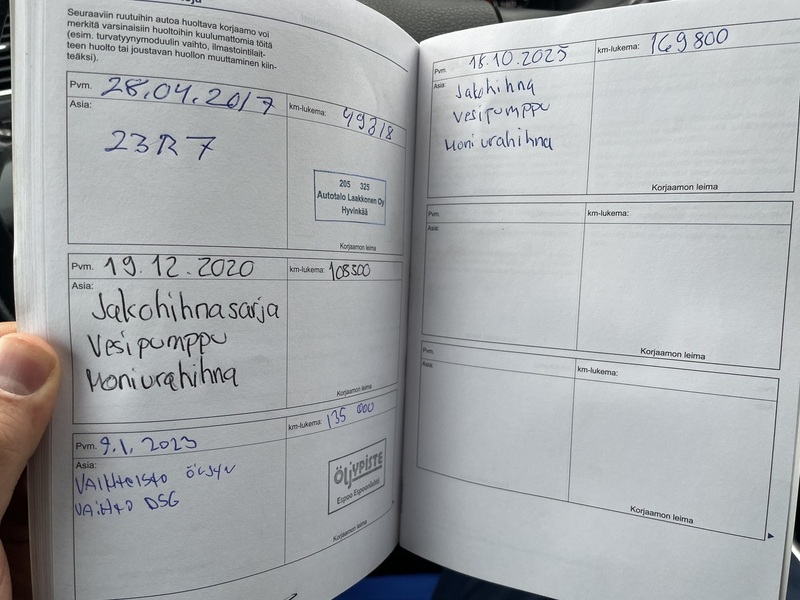 Seuraaviin ruutuihin autoa huoltava korjaamo voi
merkitä varsinaisiin huoltoihin kuulumattomia töitä
(esim. turvatyynymoduulin vaihto, ilmastointilait-
teen huolto tai joustavan huollon muuttaminen kiin-
teäksi).
Pvm. 28.04.2017
km-lukema: 49318
Asia:
23R7
205 325
Autotalo Laakkonen Oy
Hyvinkää
Korjaamon leima
Pvm. 19.12.2020
km-lukema: 108500
Asia:
Jakohihnasarja
Vesipumppu
Moniurahihna
Korjaamon leima
Pvm. 9.1.2023
km-lukema: 135 000
Asia:
VAIHTEISTO ÖLJYN
VAIHTO DSG
ÖLJYPISTE
Espoo Espoonlahti
Korjaamon leima
Pvm. 18.10.2025
km-lukema: 169800
Asia:
Jakohihna
Vesipumppu
Moniurahihna
Korjaamon leima
Pvm.
km-lukema:
Asia:
Korjaamon leima
Pvm.
km-lukema:
Asia:
Korjaamon leima